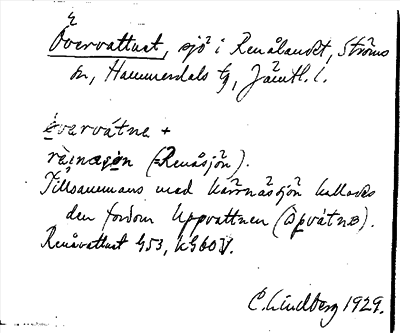 Övervattnet, sjö i Renålandet, Ströms
sn, Hammerdals tg, Jämtl. l.
ovarvátnə +
rèinəsjøn (Renåsjön).
Tillsammans med Kärrnäsjön kallades
den fordom Uppvattnen (òpvátnə).
Renåvattnet G53, KG60V.
C. Lindberg 1929.